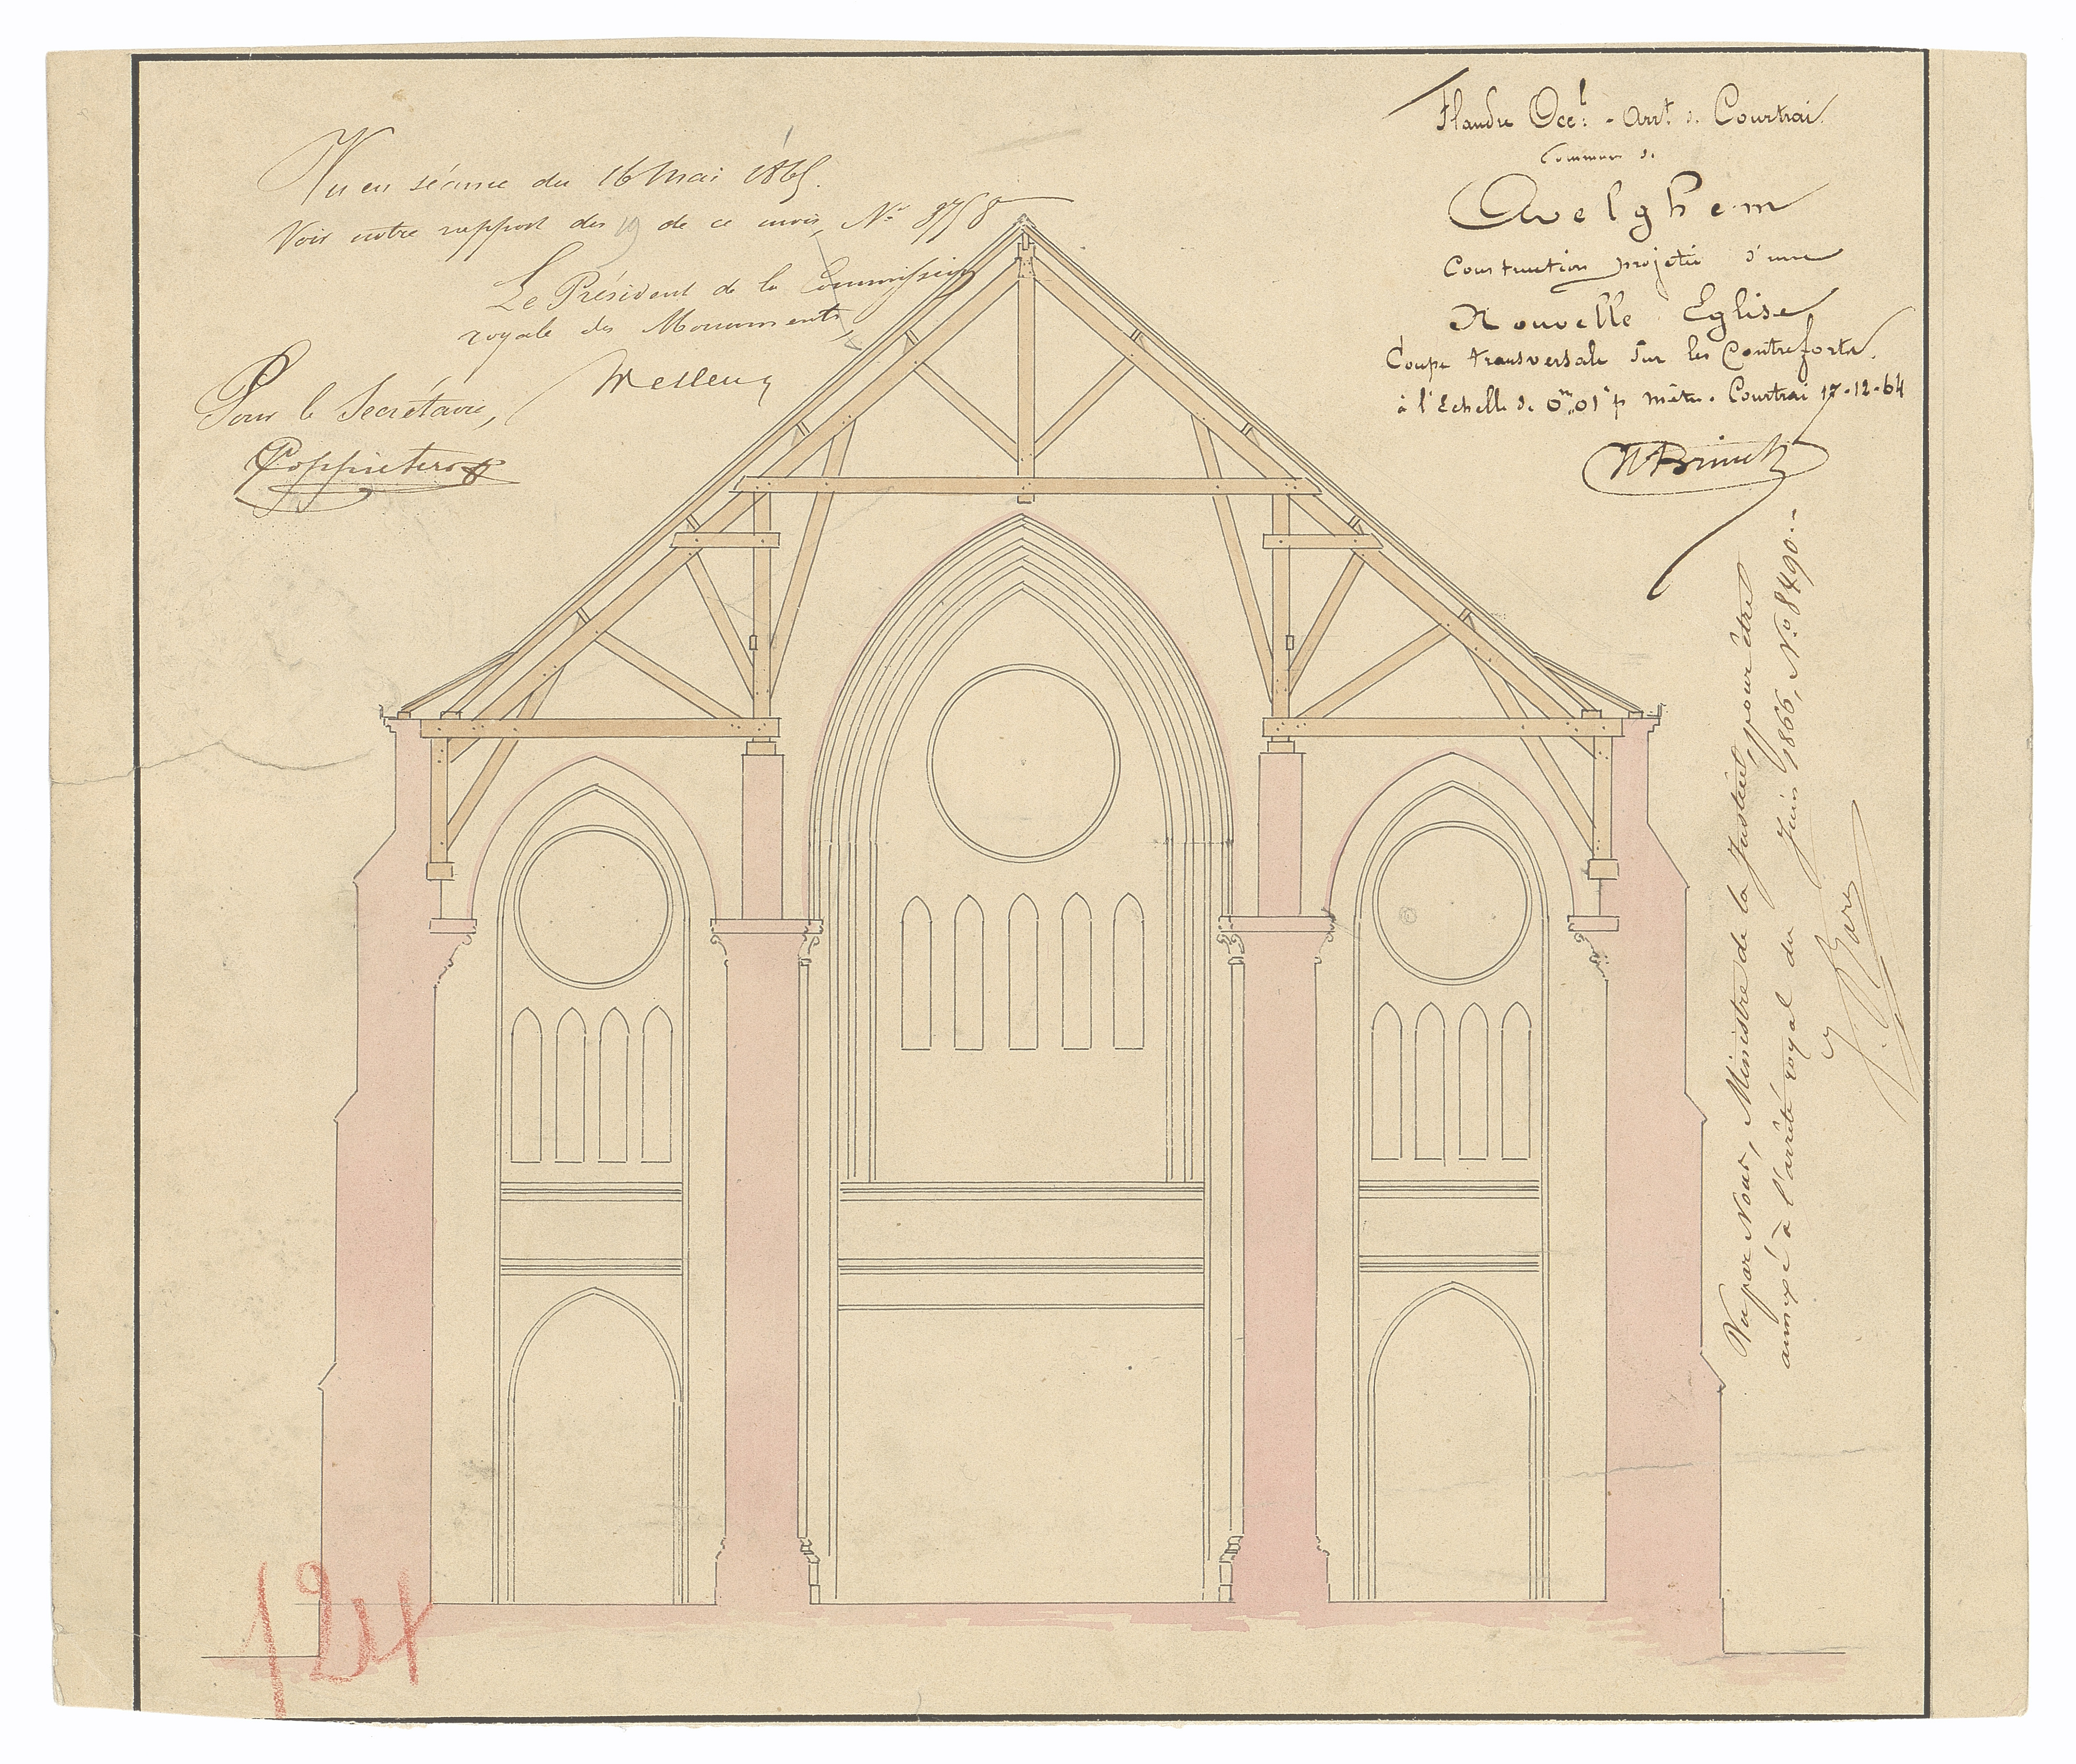 Flandre Occ.l - Arr.t de Courtrai
Commune de
Avelghem
Construction projetée d'une
Nouvelle Eglise
Coupe transversale sur les Contreforts.
à l'Echelle de 0m,01c p mètre. Courtrai 17-12-64
Vu en séance du 16 Mai 1865.
Voir notre rapport des 19 de ce mois, No 8758
Le Président de la Commission
royale des Monuments,
Wellens
Pour le Secrétaire,
Vu par Nous, Ministre de la Justice, pour être
annexé à l'arrêté royal du Juin 1866, No 8490.-
J. Bara
124